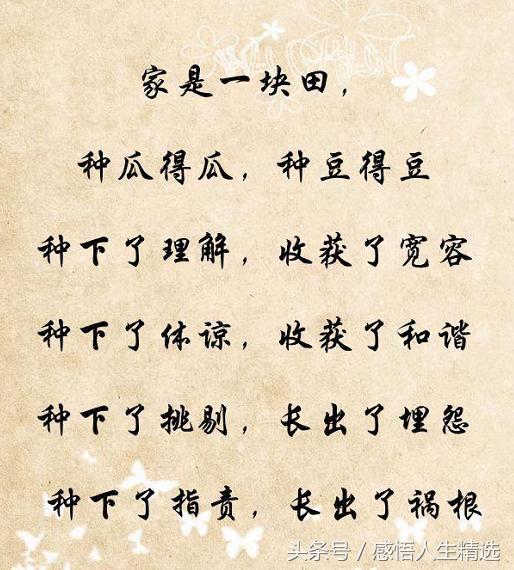 家是一块田，
种瓜得瓜，种豆得豆
种下了理解，收获了宽容
种下了体谅，收获了和谐
种下了挑剔，长出了埋怨
种下了指责，长出了祸根
头条号 / 感悟人生精选